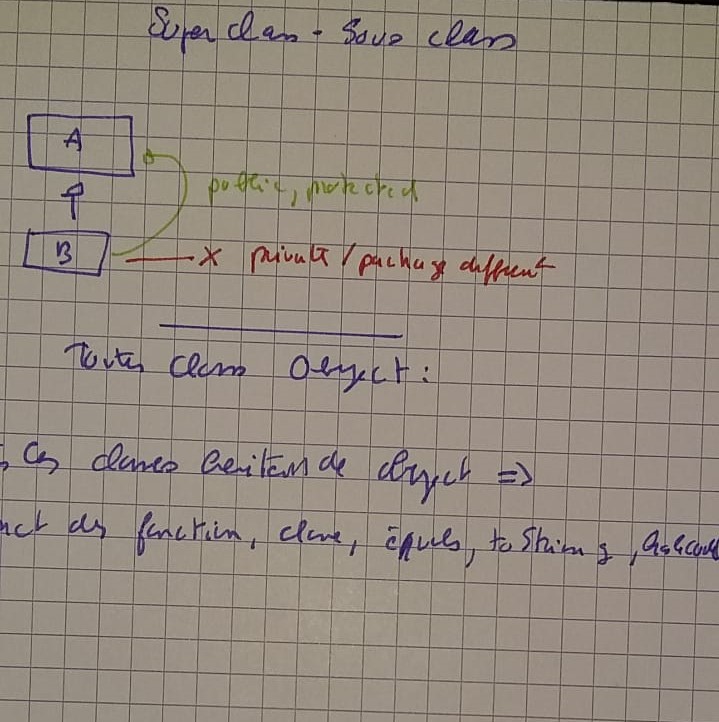 Super class - Sous class
A
public, protected
B
X private / package different
Toutes class Object:
Ces classes heritent de object =>
des function, clone, equals, toString, hashcode